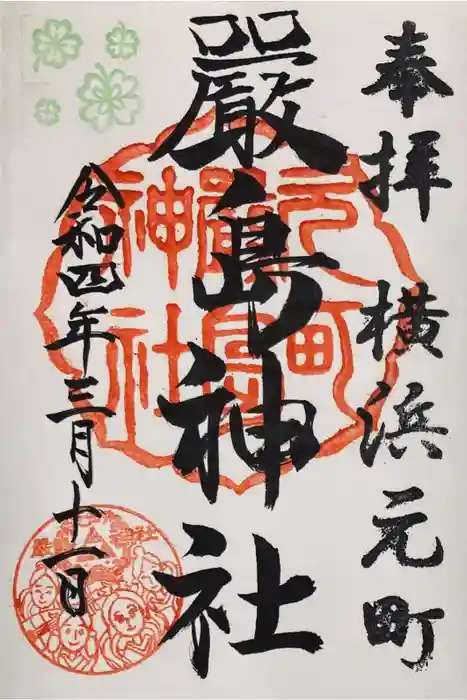 奉拝 横浜元町
嚴島神社
令和四年三月十一日
元町
嚴島
神社